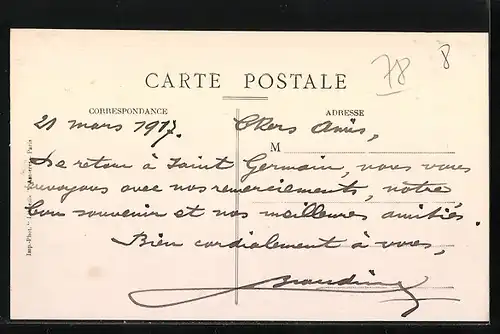 78 8
CARTE POSTALE
CORRESPONDANCE
ADRESSE
21 mars 1917. Chers Amis,
M
De retour à Saint Germain, nous vous
envoyons avec nos remerciements, notre
bon souvenir et nos meilleures amitiés.
Bien cordialement à vous,
Imp.-Phot.
Paris